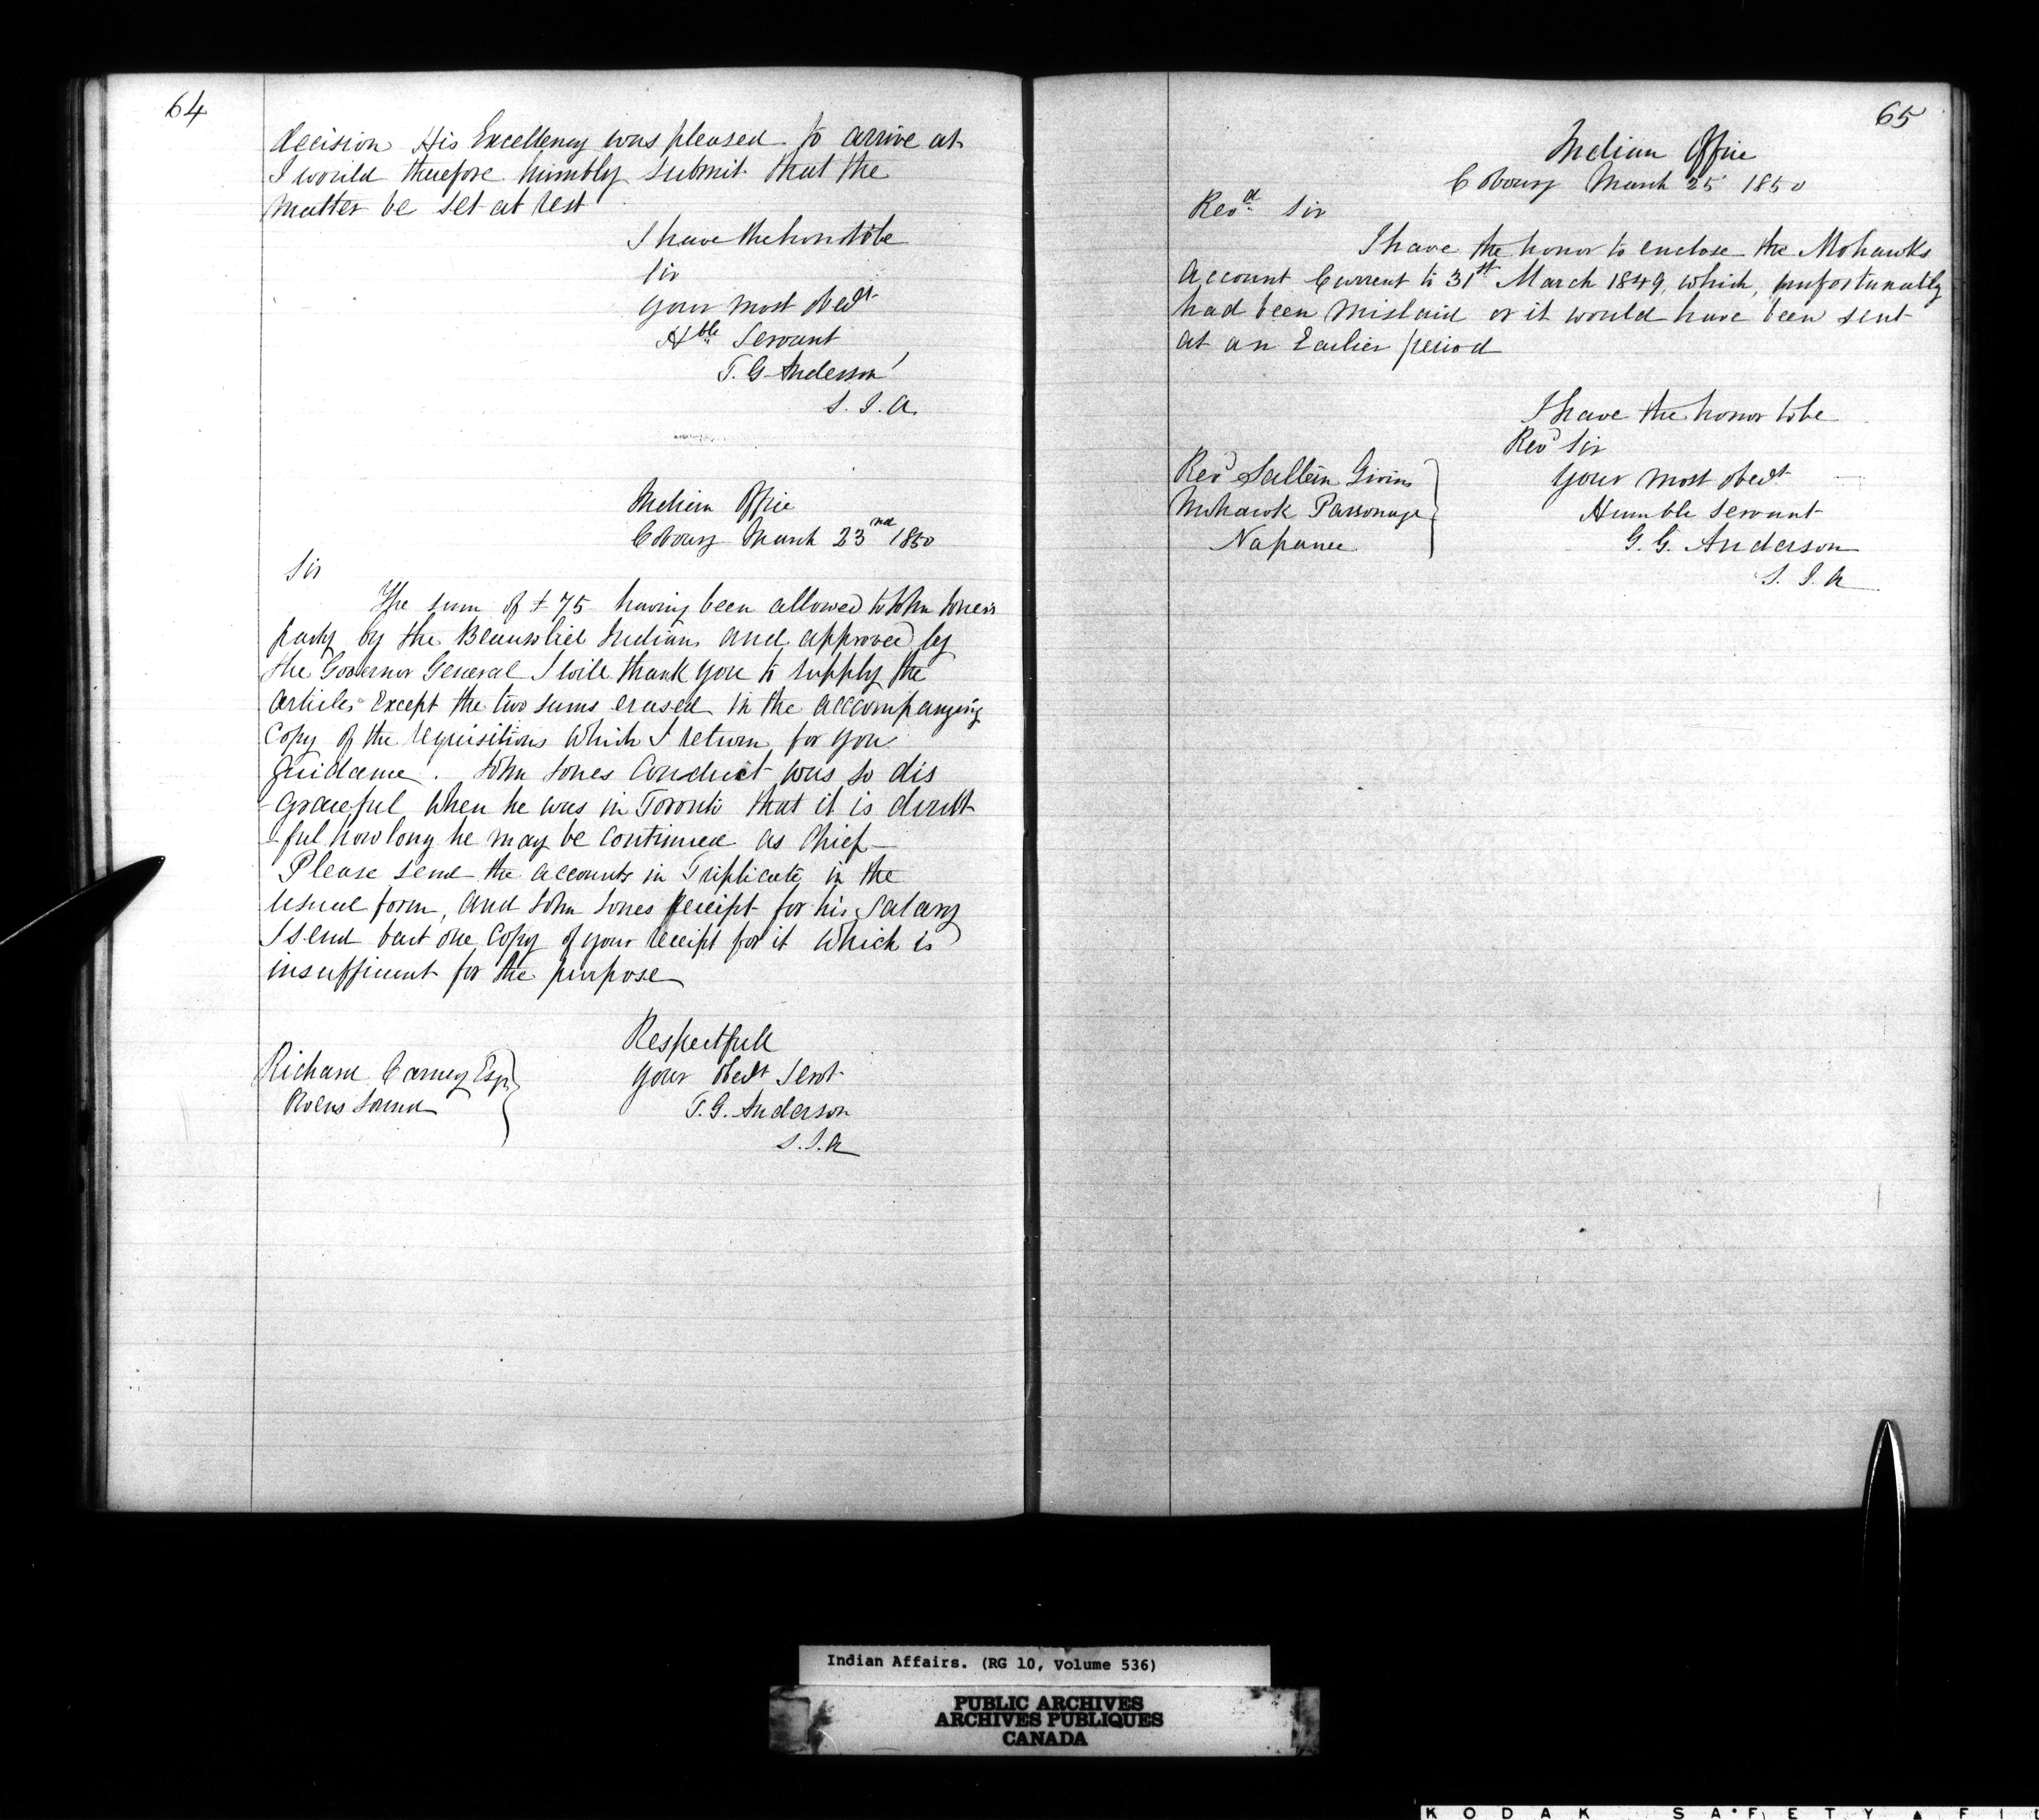 64
decision His Excellency was pleased to arrive at
I would therefore humbly submit that the
matter be set at rest
I have the honor to be
Sir
your most obedt
Hble Servant
T. G Anderson
S. I. A.
Indian Office
Cobourg March 23nd 1850
Sir
The sum of £75 having been allowed to John Jones's
party by the Beausoliel Indians and approved by
the Governor General I will thank you to supply the
articles Except the two sums erased in the accompanying
Copy of the requisitions which I return for you
guidance. John Jones Conduct was so dis
graceful when he was in Toronto that it is doubt
-ful how long he may be continued as Chief—
Please send the accounts in Triplicate in the
usual form, and John Jones receipt for his Salary
I send but one Copy of your receipt for it which is
insufficient for the purpose
Respectfull
your obedt Servt
T. G. Anderson
S. I. A
Richard Carney Esqr
Owens Sound
65
Indian Office
Cobourg March 25 1850
Revd. Sir
I have the honor to enclose the Mohawks
Account Current to 31st March 1849, which, unfortunately
had been mislaid or it would have been sent
at an Earlier period
I have the honor to be
Revd Sir
your most obedt
Humble servant
G. G. Anderson
S. I. A
Revd Saltern Givins
Mohawk Parsonage
Napanee
Indian Affairs. (RG 10, Volume 536)
PUBLIC ARCHIVES
ARCHIVES PUBLIQUES
CANADA
KODAK SAFETY FI